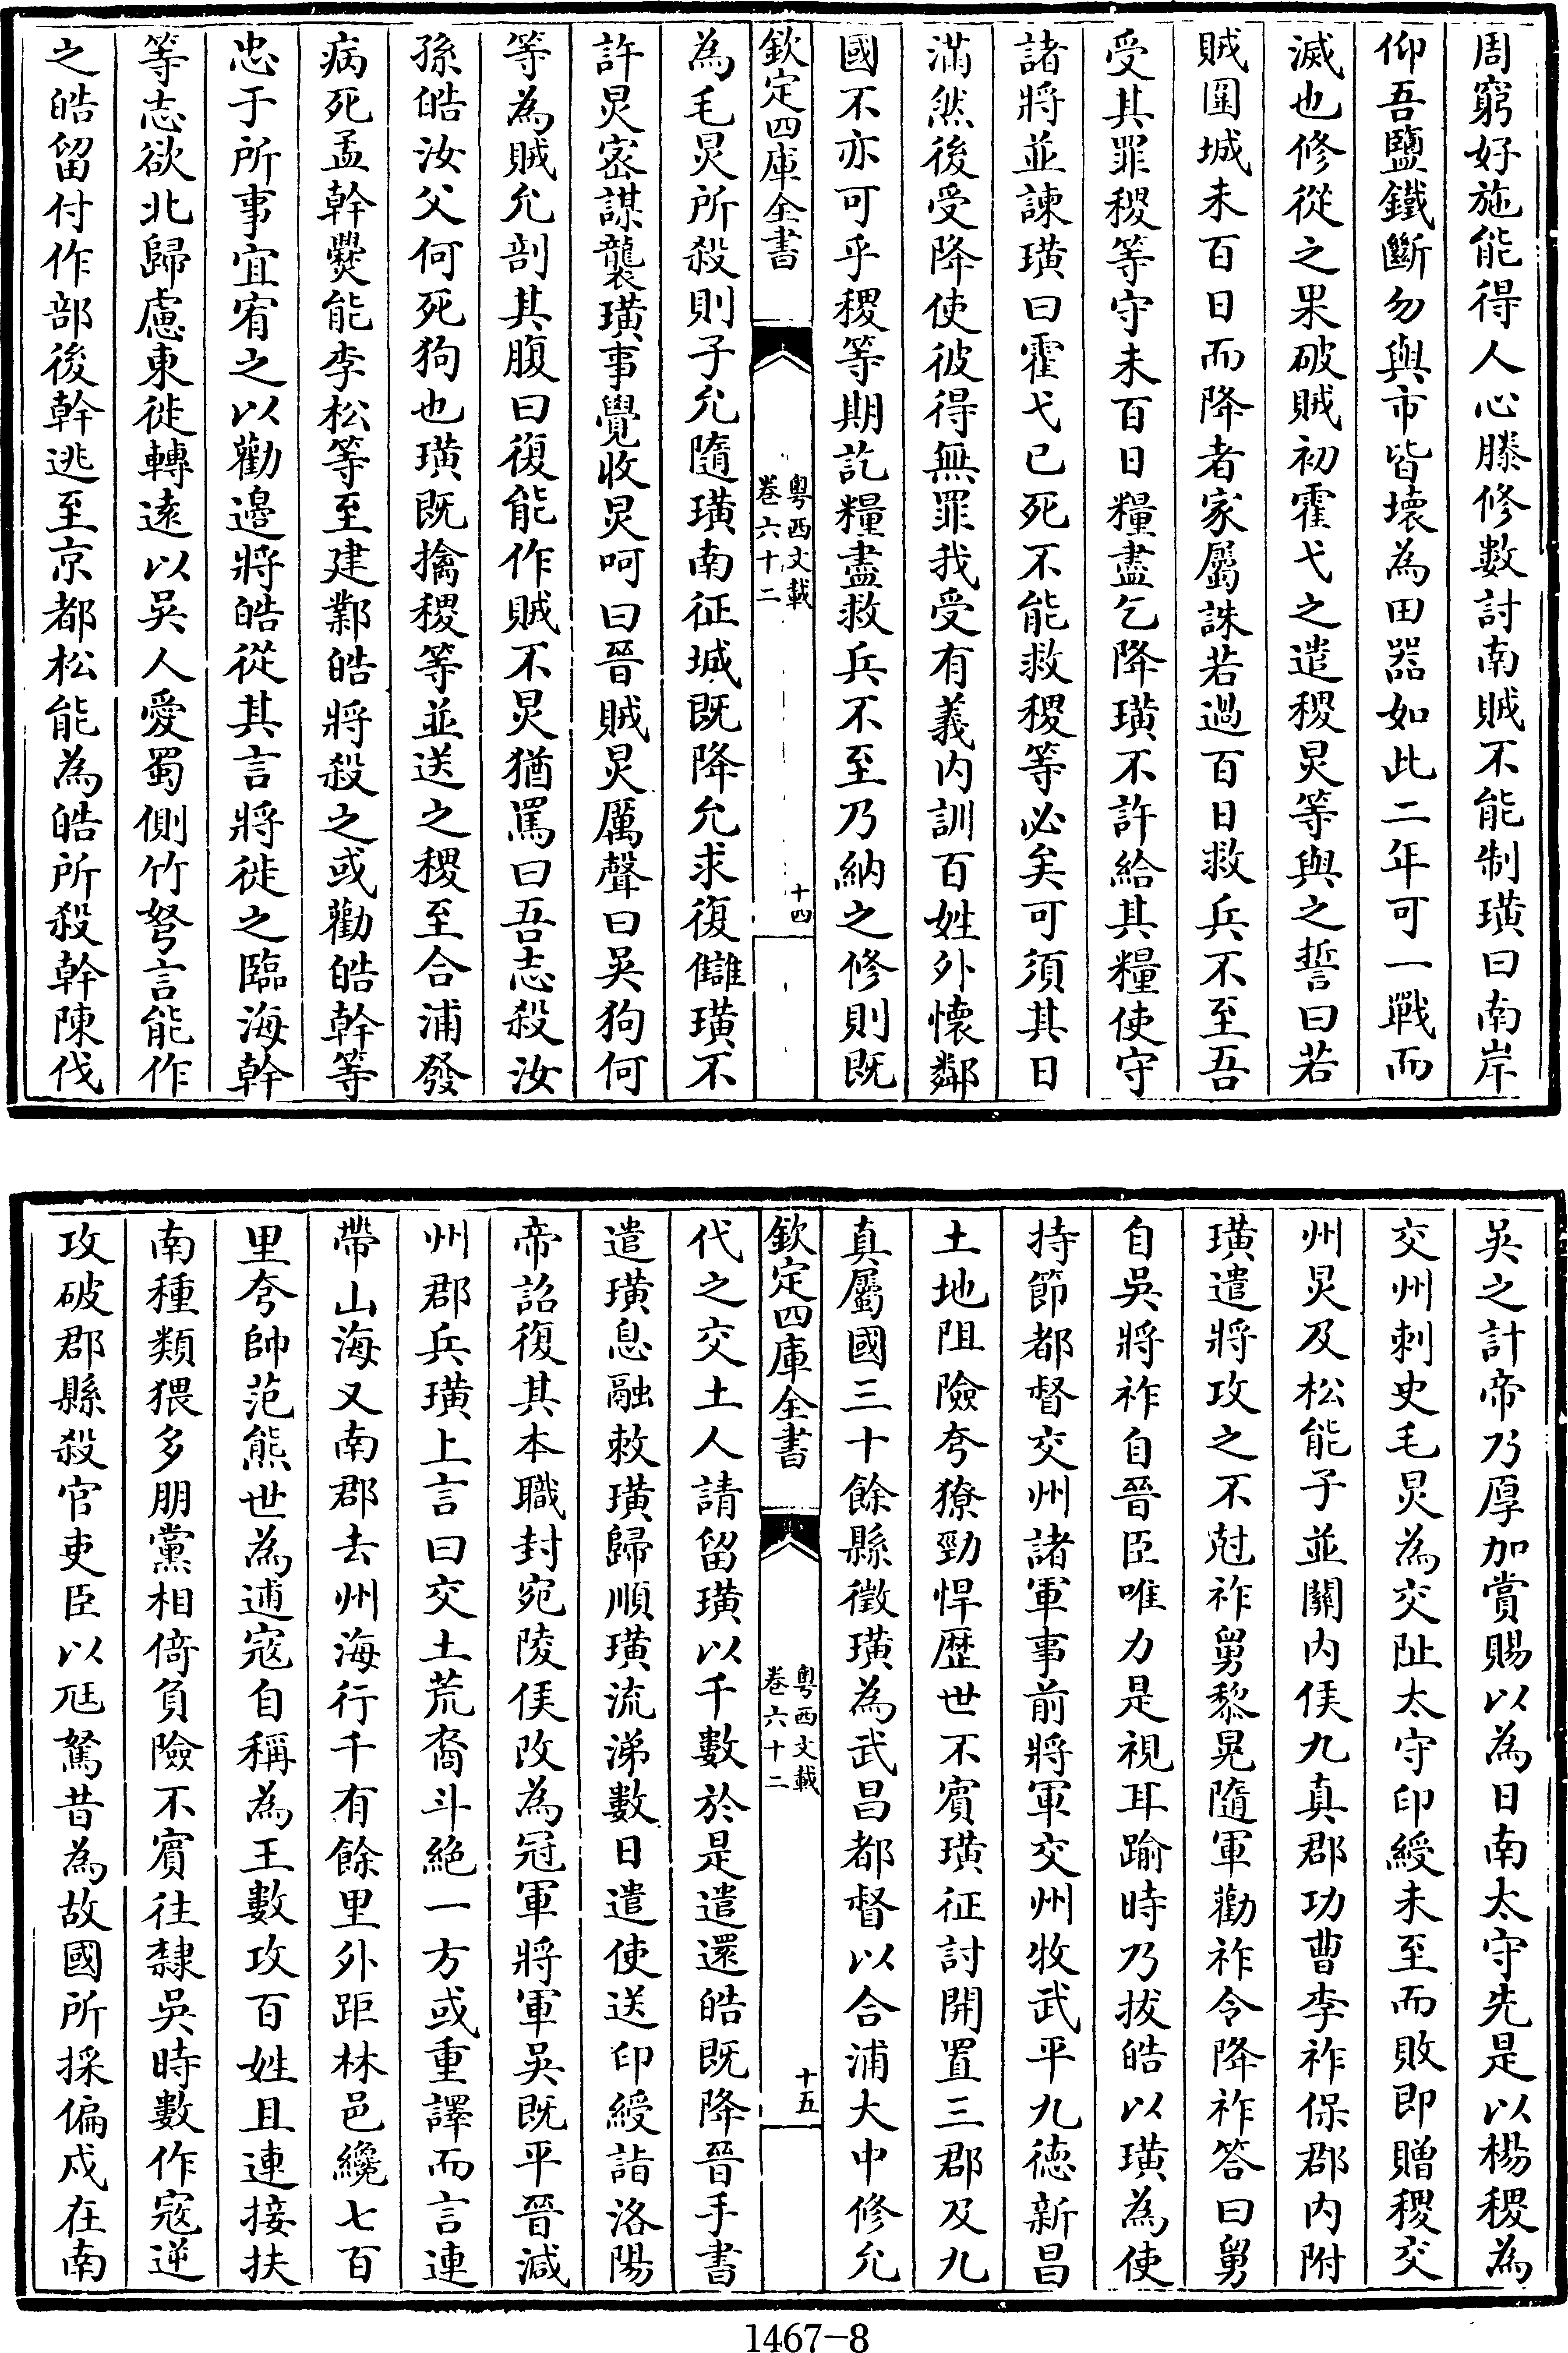 周窮好施能得人心滕修數討南賊不能制璜曰南岸
仰吾鹽鐵斷勿與市皆壞為田器如此二年可一戰而
滅也修從之果破賊初霍弋之遣稷炅等與之誓曰若
賊圍城未百日而降者家屬誅若過百日救兵不至吾
受其罪稷等守未百日糧盡乞降璜不許給其糧使守
諸將並諫璜曰霍弋已死不能救稷等必矣可須其日
滿然後受降使彼得無罪我受有義内訓百姓外懷鄰
國不亦可乎稷等期訖糧盡救兵不至乃納之修則既
欽定四庫全書
粤西文載
卷六十二
十四
為毛炅所殺則子允隨璜南征城既降允求復讎璜不
許炅密謀襲璜事覺收炅呵曰晉賊炅厲聲曰吳狗何
等為賊允剖其腹曰復能作賊不炅猶罵曰吾志殺汝
孫皓汝父何死狗也璜既擒稷等並送之稷至合浦發
病死孟幹爨能李松等至建鄴皓將殺之或勸皓幹等
忠于所事宜宥之以勸邉將皓從其言將徙之臨海幹
等志欲北歸慮東徙轉逺以吳人愛蜀側竹弩言能作
之皓留付作部後幹逃至京都松能為皓所殺幹陳伐
吳之計帝乃厚加賞賜以為日南太守先是以楊稷為
交州刺史毛炅為交阯太守印綬未至而敗即贈稷交
州炅及松能子並關内侯九真郡功曹李祚保郡内附
璜遣將攻之不尅祚舅黎晃隨軍勸祚令降祚答曰舅
自吳將祚自晉臣唯力是視耳踰時乃拔皓以璜為使
持節都督交州諸軍事前將軍交州牧武平九德新昌
土地阻險夸獠勁悍歴世不賓璜征討開置三郡及九
真屬國三十餘縣徵璜為武昌都督以合浦大中修允
欽定四庫全書
粤西文載
卷六十二
十五
代之交土人請留璜以千數於是遣還皓既降晉手書
遣璜息融敕璜歸順璜流涕數日遣使送印綬詣洛陽
帝詔復其本職封宛陵侯改為冠軍將軍吳既平晉減
州郡兵璜上言曰交土荒裔斗絶一方或重譯而言連
帶山海又南郡去州海行千有餘里外距林邑纔七百
里夸帥范熊世為逋寇自稱為王數攻百姓且連接扶
南種類猥多朋黨相倚負險不賓往隸吳時數作寇逆
攻破郡縣殺官吏臣以尫駑昔為故國所採偏戍在南
1467-8